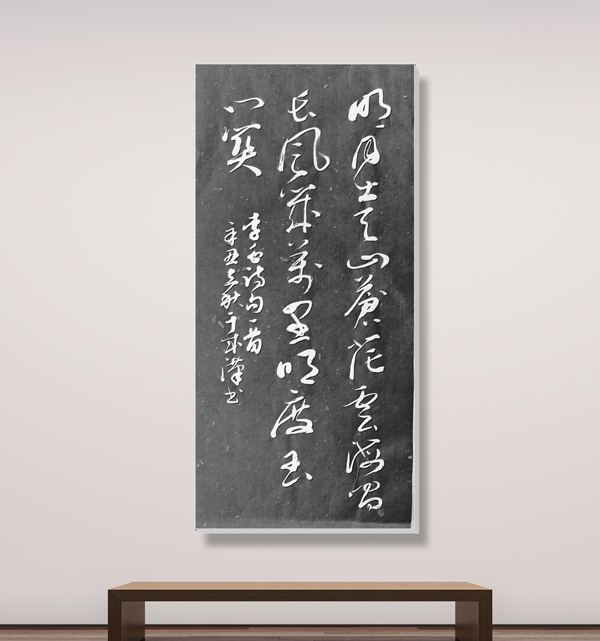 明月出天山蒼茫雲海間
長風幾萬里吹度玉
門關
李白詩句一首
辛丑秋于漢书